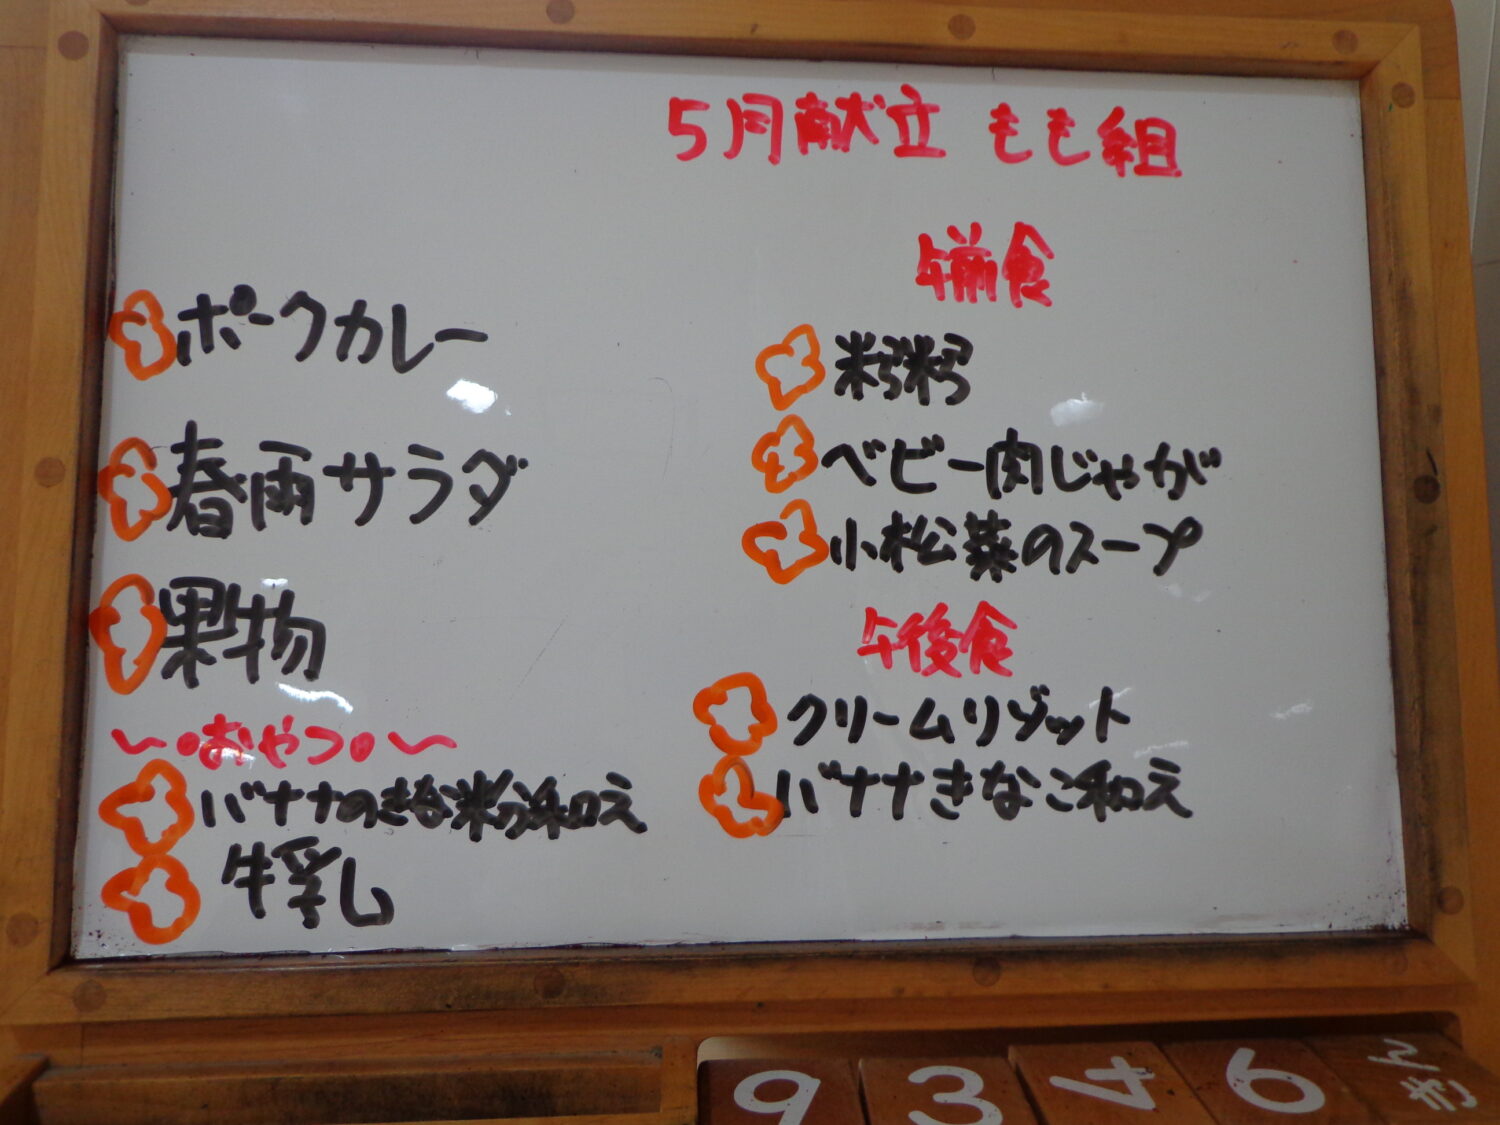 5月献立 もも組
ポークカレー
春雨サラダ
果物
〜・おやつ・〜
バナナのきな粉和え
牛乳
午前食
ベビー肉じゃが
小松菜のスープ
午後食
クリームリゾット
バナナきなこ和え
9 3 4 6 きん